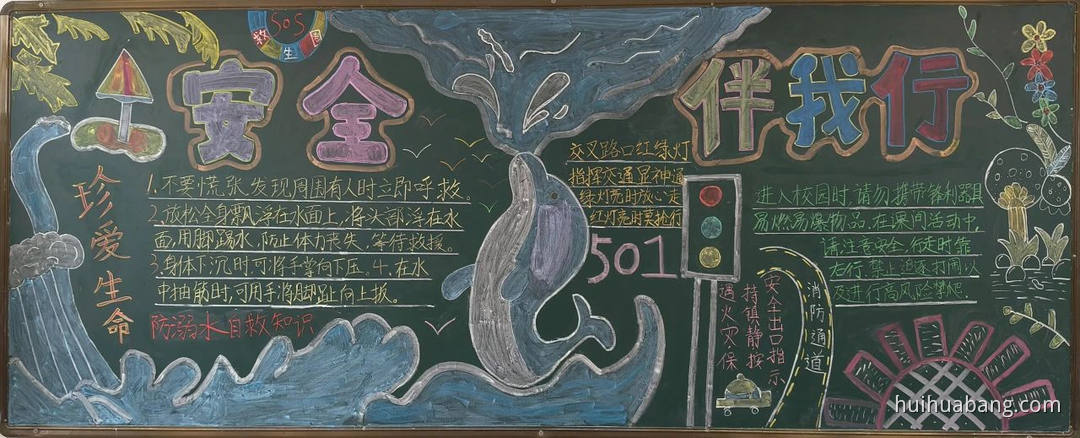 SOS
救生圈
安全
伴我行
珍爱生命
1.不要慌张,发现周围有人时立即呼救。
2.放松全身飘浮在水面上,将头部浮在水
面,用脚踢水,防止体力丧失,等待救援。
3.身体下沉时,可将手掌向下压。十.在水
中抽筋时,可用手将脚趾向上扳。
防溺水自救知识
交叉路口红绿灯
指挥交通显神通
绿灯亮时放心走
红灯亮时莫抢行
501
进入校园时,请勿携带锋利器具
易燃易爆物品,在课间活动中,
请注意安全,行走时靠
右行,禁止追逐打闹以
及进行高风险攀爬
遇火灾保
持镇静按
安全出口指示
消防通道
huihuabang.com